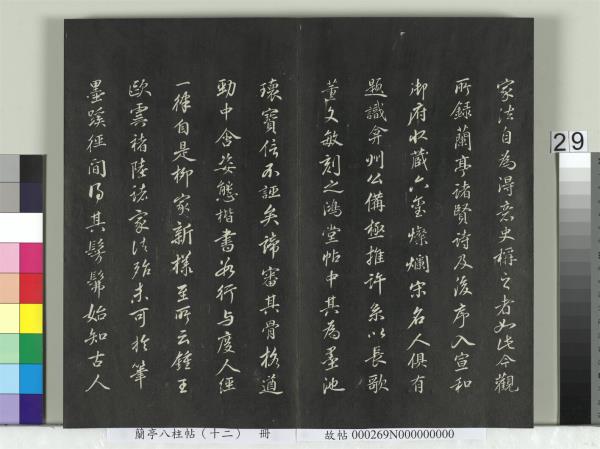 家法自為得意史稱之者如此今觀
所錄蘭亭諸賢詩及後序入宣和
御府收藏六璽燦爛宋名人俱有
題識弇州公備極推許系以長歌
董文敏刻之鴻堂帖中其為墨池
瓌寶信不誣矣諦審其骨格遒
勁中含姿態楷書如行与度人經
一種自是柳家新樣至所云鍾王
歐虞褚陸諸家法殆未可於筆
墨蹊徑間得其髣髴始知古人
29
蘭亭八柱帖(十二) 冊
故帖 000269N000000000